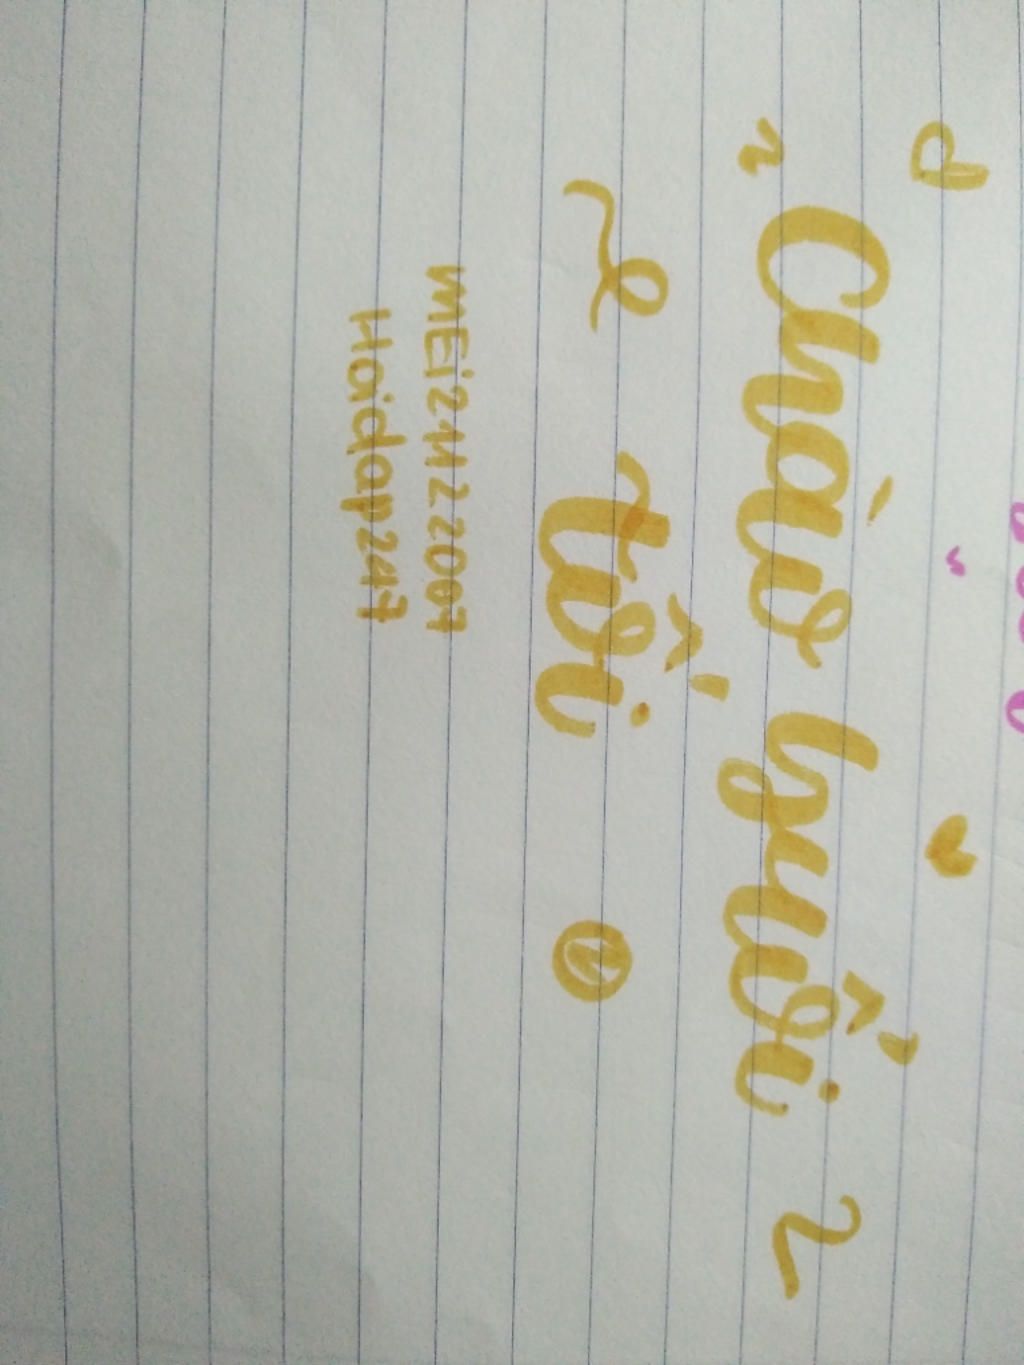 Chào buổi
tối
MEi21122007
Hoidap247